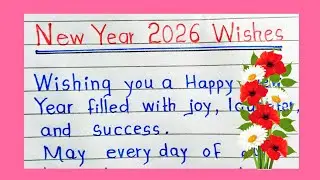 New Year 2026 Wishes
Wishing you a Happy
Year filled with joy,
and success.
May every day of